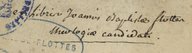 Ex Libris Joannis Baptistæ flottes
theologiæ candidati
FLOTTES